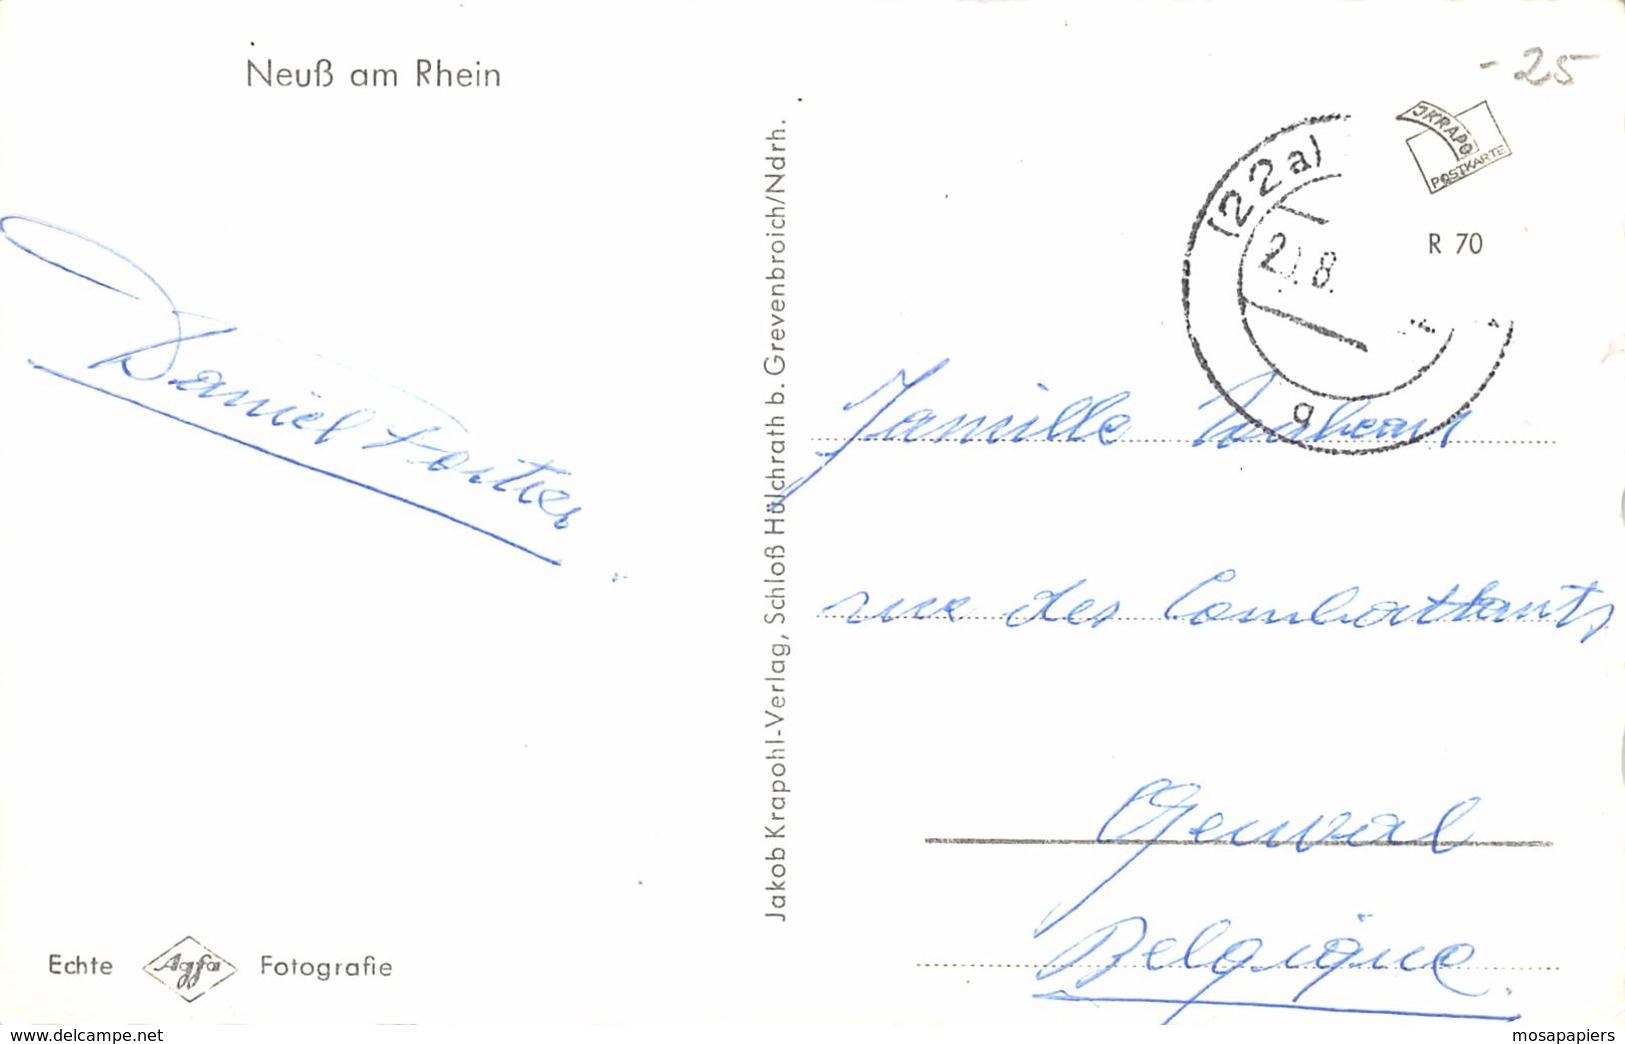 Neuß am Rhein
Daniel Fortier
Echte Agfa Fotografie
Jakob Krapohl-Verlag, Schloß Hülchrath b. Grevenbroich/Ndrh.
-25
JKRAPO
POSTKARTE
R 70
(22a)
8.
g
Famille
rue des Combattants
Genval
Belgique.
www.delcampe.net
mosapapiers